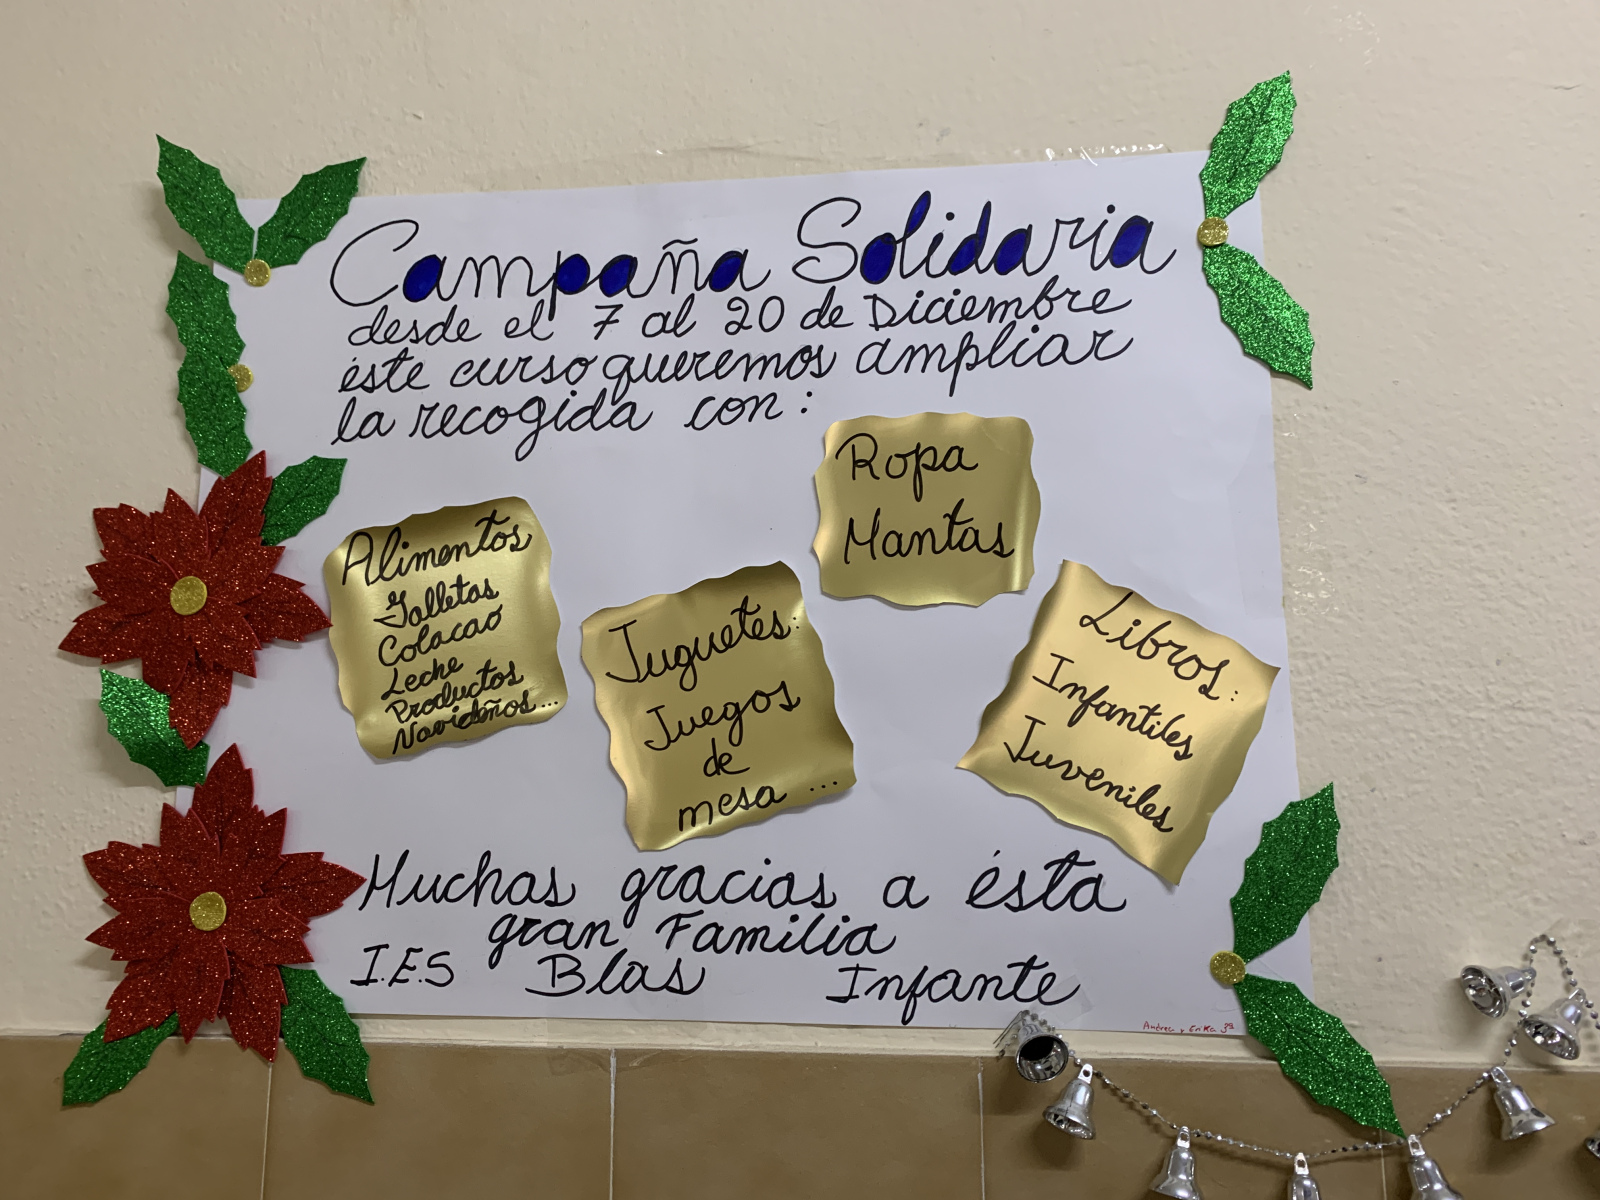 Campaña Solidaria
desde el 7 al 20 de Diciembre
éste curso queremos ampliar
la recogida con:
Ropa
Mantas
Alimentos
Galletas
Colacao
Leche
Productos
Navideños...
Juguetes:
Juegos
de
mesa ...
Libros:
Infantiles
Juveniles
Muchas gracias a ésta
gran Familia
I.E.S Blas Infante
Andrea y Erika 3º